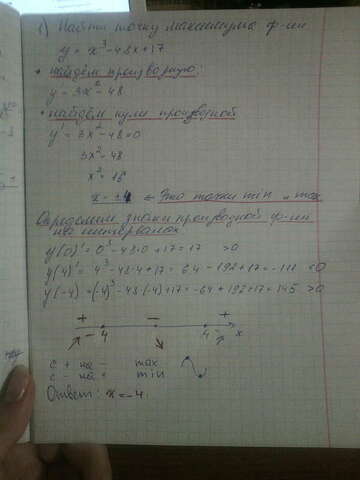 1) Найти точку максимума ф-ии
y = x³-48x+17
• найдём производную:
y = 3x² - 48
• найдём нули производной
y' = 3x² - 48 = 0
3x² = 48
x² = 16
x = ±4 ← Это точки min и max
Определим знаки производной ф-ии
на интервалах:
y(0)' = 0³ - 48·0 + 17 = 17 >0
y(4)' = 4³ - 48·4 + 17 = 64 - 192 + 17 = -111 <0
y(-4) = (-4)³ - 48·(-4) + 17 = -64 + 192 + 17 = 145 >0
+ - +
-4 4 x
с + на - max
с - на + min
Ответ: x = -4.